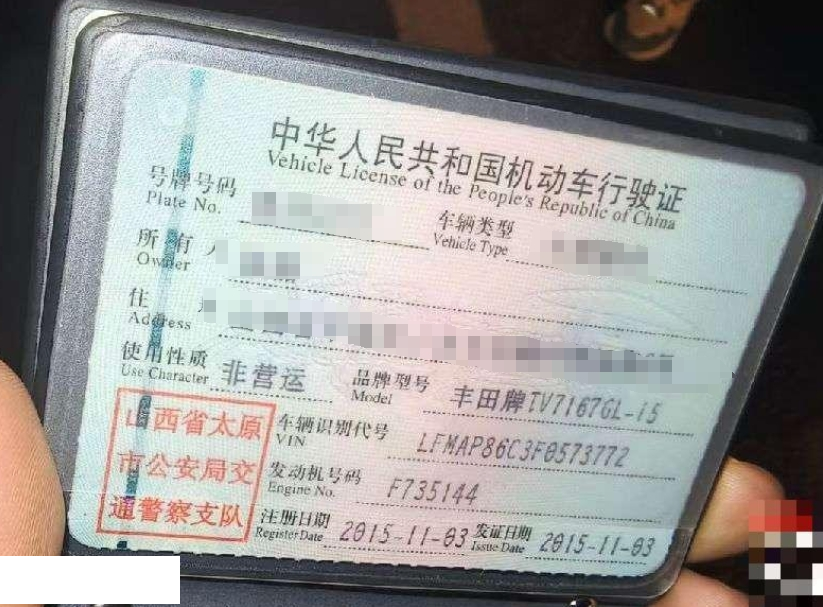 中华人民共和国机动车行驶证
Vehicle License of the People's Republic of China
号牌号码
Plate No.
车辆类型
Vehicle Type
所有人
Owner
住
Address
使用性质 非营运
Use Character
品牌型号 丰田牌TV7167GL-i5
Model
山西省太原
市公安局交
通警察支队
车辆识别代号 LFMAP86C3F0573772
VIN
发动机号码 F735144
Engine No.
注册日期 2015-11-03
Register Date
发证日期 2015-11-03
Issue Date